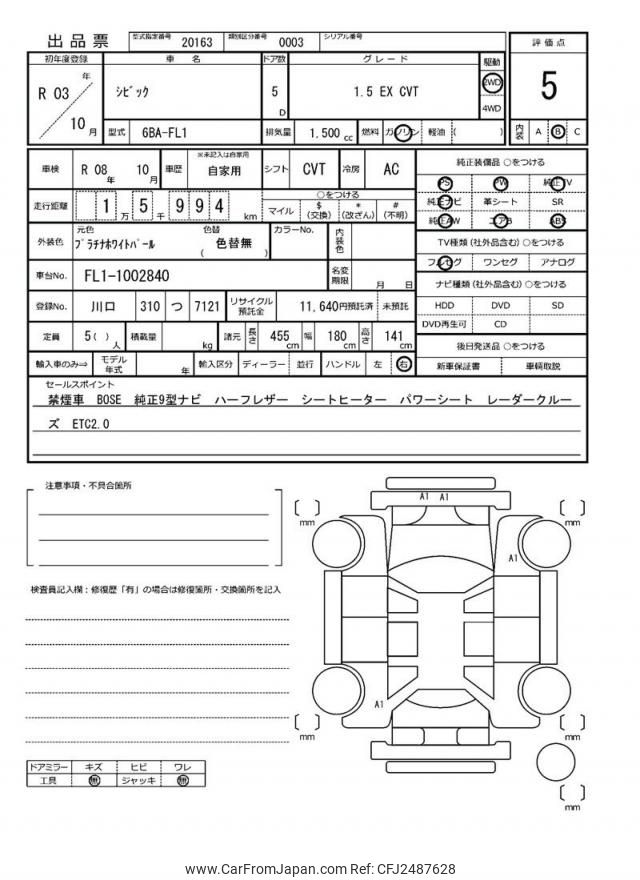 出品票 型式指定番号 20163 類別区分番号 0003 シリアル番号
初年度登録 車名 ドア数 グレード 駆動 評価点
R 03 年 10 月 ｼﾋﾞｯｸ 5 D 1.5 EX CVT 2WD 4WD 5
型式 6BA-FL1 排気量 1.500 cc 燃料 ガソリン 軽油 ( ) 内装 A B C
車検 R 08 年 10 月 車歴 ※未記入は自家用 自家用 シフト CVT 冷房 AC 純正装備品 ○をつける
PS PW 純正TV
純正ナビ 革シート SR
純正AW エアB ABS
走行距離 1 万 5 千 9 9 4 km ○をつける
マイル $ (交換) * (改ざん) # (不明)
TV種類 (社外品含む) ○をつける
フルセグ ワンセグ アナログ
外装色 元色 ﾌﾟﾗﾁﾅﾎﾜｲﾄﾊﾟｰﾙ 色替 ( 色替無 ) カラーNo. 内装色
車台No. FL1-1002840 名変期限 月 日
ナビ種類 (社外品含む) ○をつける
HDD DVD SD
DVD再生可 CD
登録No. 川口 310 つ 7121 リサイクル預託金 11,640円預託済 未預託
定員 5 ( ) 人 積載量 kg 諸元 長さ 455 cm 幅 180 cm 高さ 141 cm
後日発送品 ○をつける
新車保証書 車輌取説
輸入車のみ⇒ モデル年式 年 輸入区分 ディーラー 並行 ハンドル 左 右
セールスポイント
禁煙車 BOSE 純正9型ナビ ハーフレザー シートヒーター パワーシート レーダークルー
ズ ETC2.0
注意事項・不具合箇所
検査員記入欄：修復歴「有」の場合は修復箇所・交換箇所を記入
A1 A1
A1
A1
mm
mm
mm
mm
mm
ドアミラー キズ ヒビ ワレ
工具 無 ジャッキ 無
www.CarFromJapan.com Ref: CFJ2487628